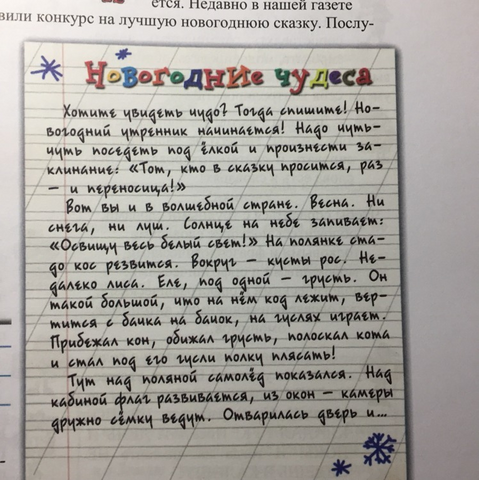 ется. Недавно в нашей газете
вили конкурс на лучшую новогоднюю сказку. Послу-
Новогодние чудеса
Хотите увидеть чудо? Тогда спишите! Но-
вогодний утренник начинается! Надо чуть-
чуть поседеть под ёлкой и произнести за-
клинание: «Тот, кто в сказку просится, раз
– и переносица!»
Вот вы и в волшебной стране. Весна. Ни
снега, ни луш. Солнце на небе запивает:
«Освищу весь белый свет!» На полянке ста-
до кос резвится. Вокруг – кусты рос. Не-
далеко лиса. Еле, под одной – грусть. Он
такой большой, что на нём код лежит, вер-
тится с бачка на бачок, на гуслях играет.
Прибежал кон, обижал грусть, полоскал кота
и стал под его гусли полку плясать!
Тут над поляной самолёд показался. Над
кабиной флаг развивается, из окон – камеры
дружно сёмку ведут. Отварилась дверь и...